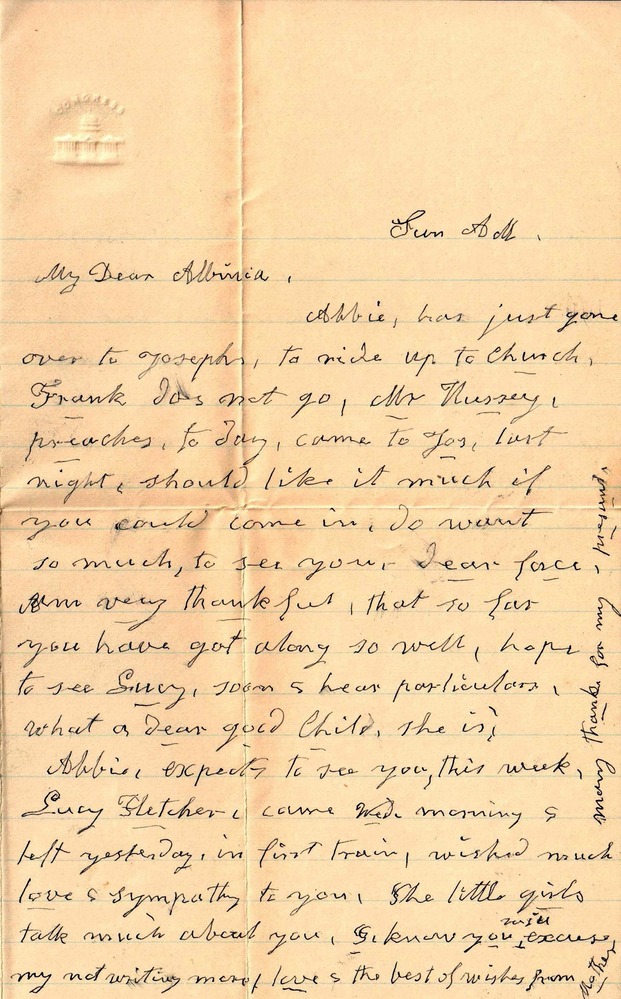 CONGRESS
Sun AM.
My Dear Albinia,
Abbie, has just gone
over to Josephs, to ride up to Church,
Frank does not go, Mr Hussey,
preaches, to day, came to Jos, last
night, should like it much if
you could come in, do want
so much, to see your dear face,
Am very thankful, that so far
you have got along so well, hope
to see Lucy, soon & hear particulars,
what a dear good Child, she is,
Abbie, expects to see you, this week,
Lucy Fletcher, came Wed. morning &
left yesterday, in first train, wished much
love & sympathy to you, The little girls
talk much about you, I know you will excuse
my not writing more, love & the best of wishes from
Mother
many thanks for my present,